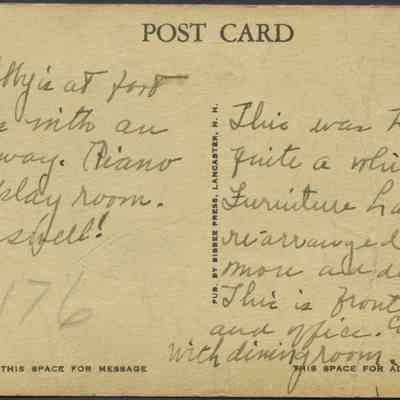 POST CARD
is at fort
with an
way. Piano
play room.
shell!
176
THIS SPACE FOR MESSAGE
PUB. BY BISBEE PRESS, LANCASTER, N. H.
This was
quite a whi
Furniture ha
rearranged
more and
This is front
and office.
with dining room.
THIS SPACE FOR AD